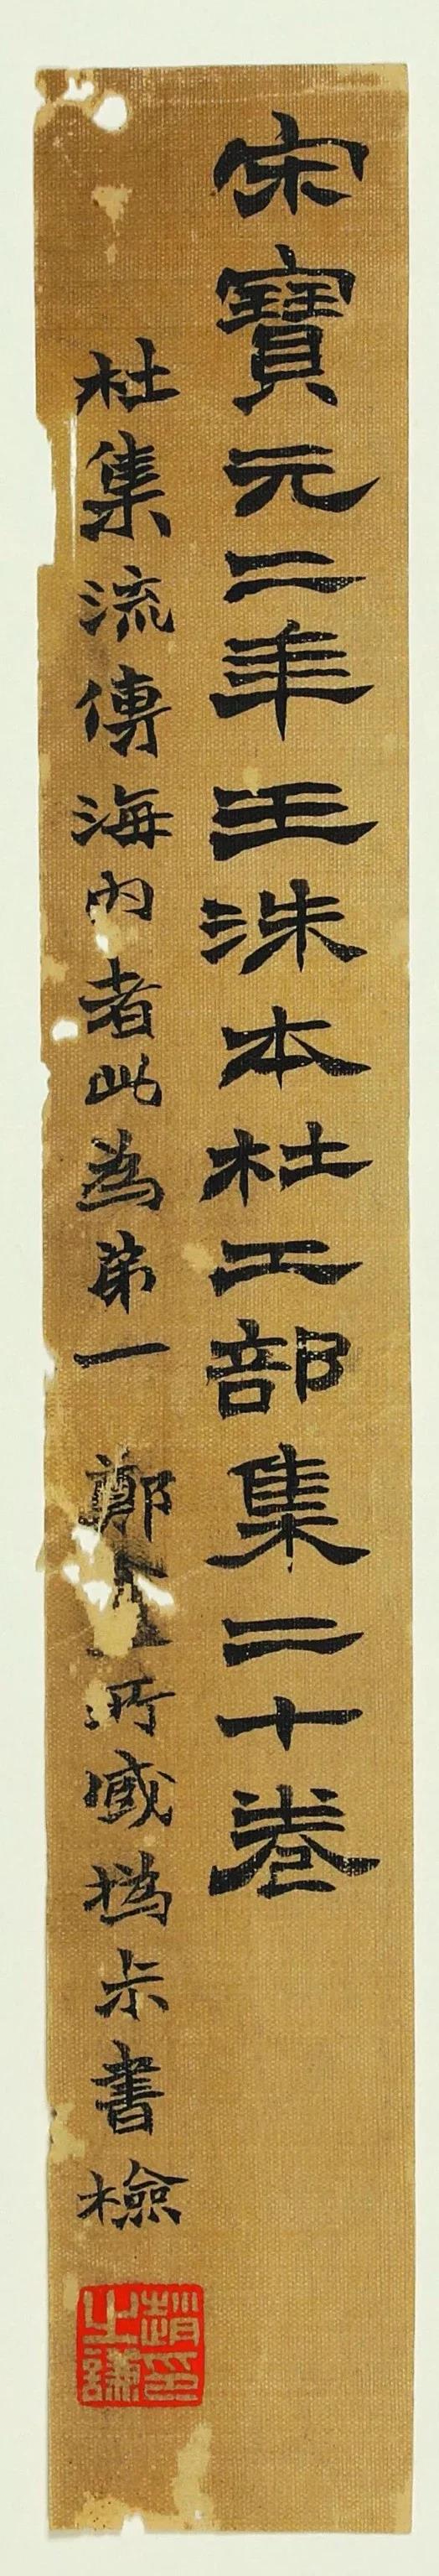 宋寶元二年王洙本杜工部集二十卷
杜集流傳海內者此為第一 鄭 所臧撝尗書檢
趙印之謙